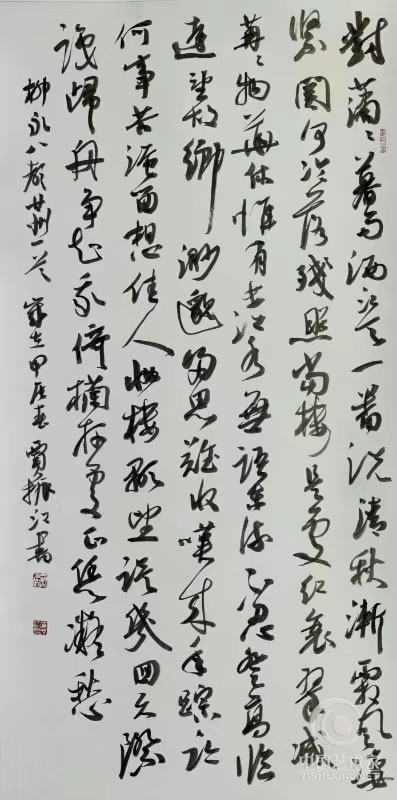 對瀟々暮雨洒江天一番洗清秋漸霜風凄
緊關河冷落殘照當樓是處紅衰翠減
苒々物華休惟有長江水無語東流不忍登高臨
遠望故鄉渺邈歸思難收嘆年來踪迹
何事苦淹留想佳人妝樓顒望誤幾回天際
識歸舟爭知我倚欄杆處正恁凝愁
柳永八聲甘州一首 歲在甲辰春 賈振江書
中国艺术家
YISHUJIA.NET